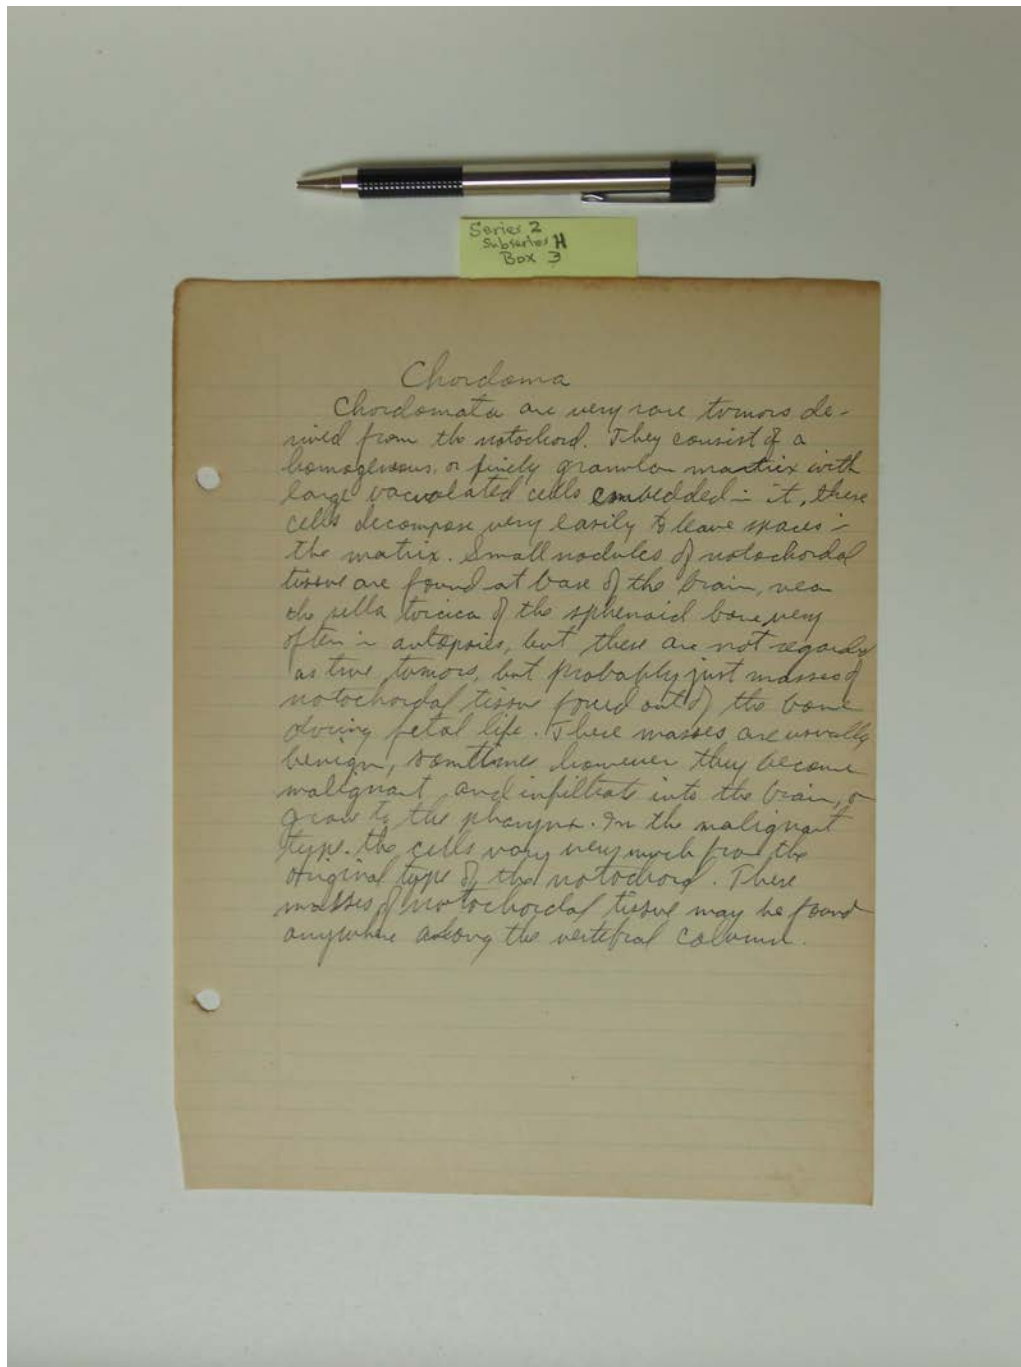 Series 2
Subseries H
Box 3
Chordoma
Chordomata are very rare tumors de-
rived from the notochord. They consist of a
homogeneous, or finely granular matrix with
large vacuolated cells embedded in it, these
cells decompose very easily to leave spaces in
the matrix. Small nodules of notochordal
tissue are found at base of the brain, near
the sella turcica of the sphenoid bone very
often in autopsies, but these are not regarded
as true tumors, but probably just masses of
notochordal tissue out of the bone
during fetal life. These masses are usually
benign, sometimes however they become
malignant and infiltrate into the brain, or
grow to the pharynx. In the malignant
type the cells vary very much from the
original type of the notochord. These
masses of notochordal tissue may be found
anywhere along the vertebral column.